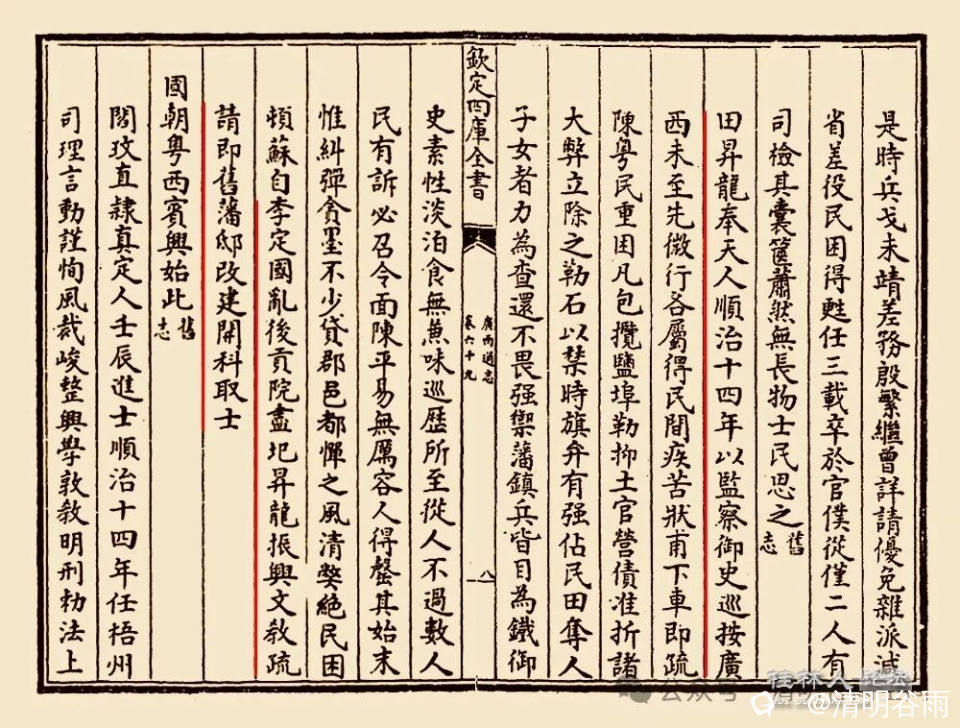 是時兵戈未靖差務殷繁繼曾詳請優免雜派減
省差役民困得甦任三載卒於官僕從僅二人有
司檢其囊篋蕭然無長物士民思之舊志
田昇龍奉天人順治十四年以監察御史巡按廣
西未至先微行各屬得民間疾苦狀甫下車即疏
陳粤民重困凡包攬鹽埠勒抑土官營債准折諸
大弊立除之勒石以禁時旗弁有强佔民田奪人
子女者力為查還不畏强禦藩鎮兵皆目為鐵御
欽定四庫全書
廣西通志
卷六十九
八
史素性淡泊食無兼味巡歷所至從人不過數人
民有訴必召令面陳平易無厲容人得罄其始末
惟糾彈貪墨不少貸郡邑都憚之風清獘絶民困
頓蘇自李定國亂後貢院盡圯昇龍振興文教疏
請即舊藩邸改建開科取士
國朝粤西賓興始此舊志
閻玟直隸真定人壬辰進士順治十四年任梧州
司理言動謹恂風裁峻整興學敦教明刑勅法上
桂林人
公众号
@清明谷雨